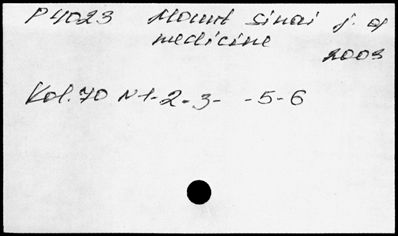 P4023 Mount Sinai j. of
medicine
2003
Vol.70 N 1-2-3- -5-6